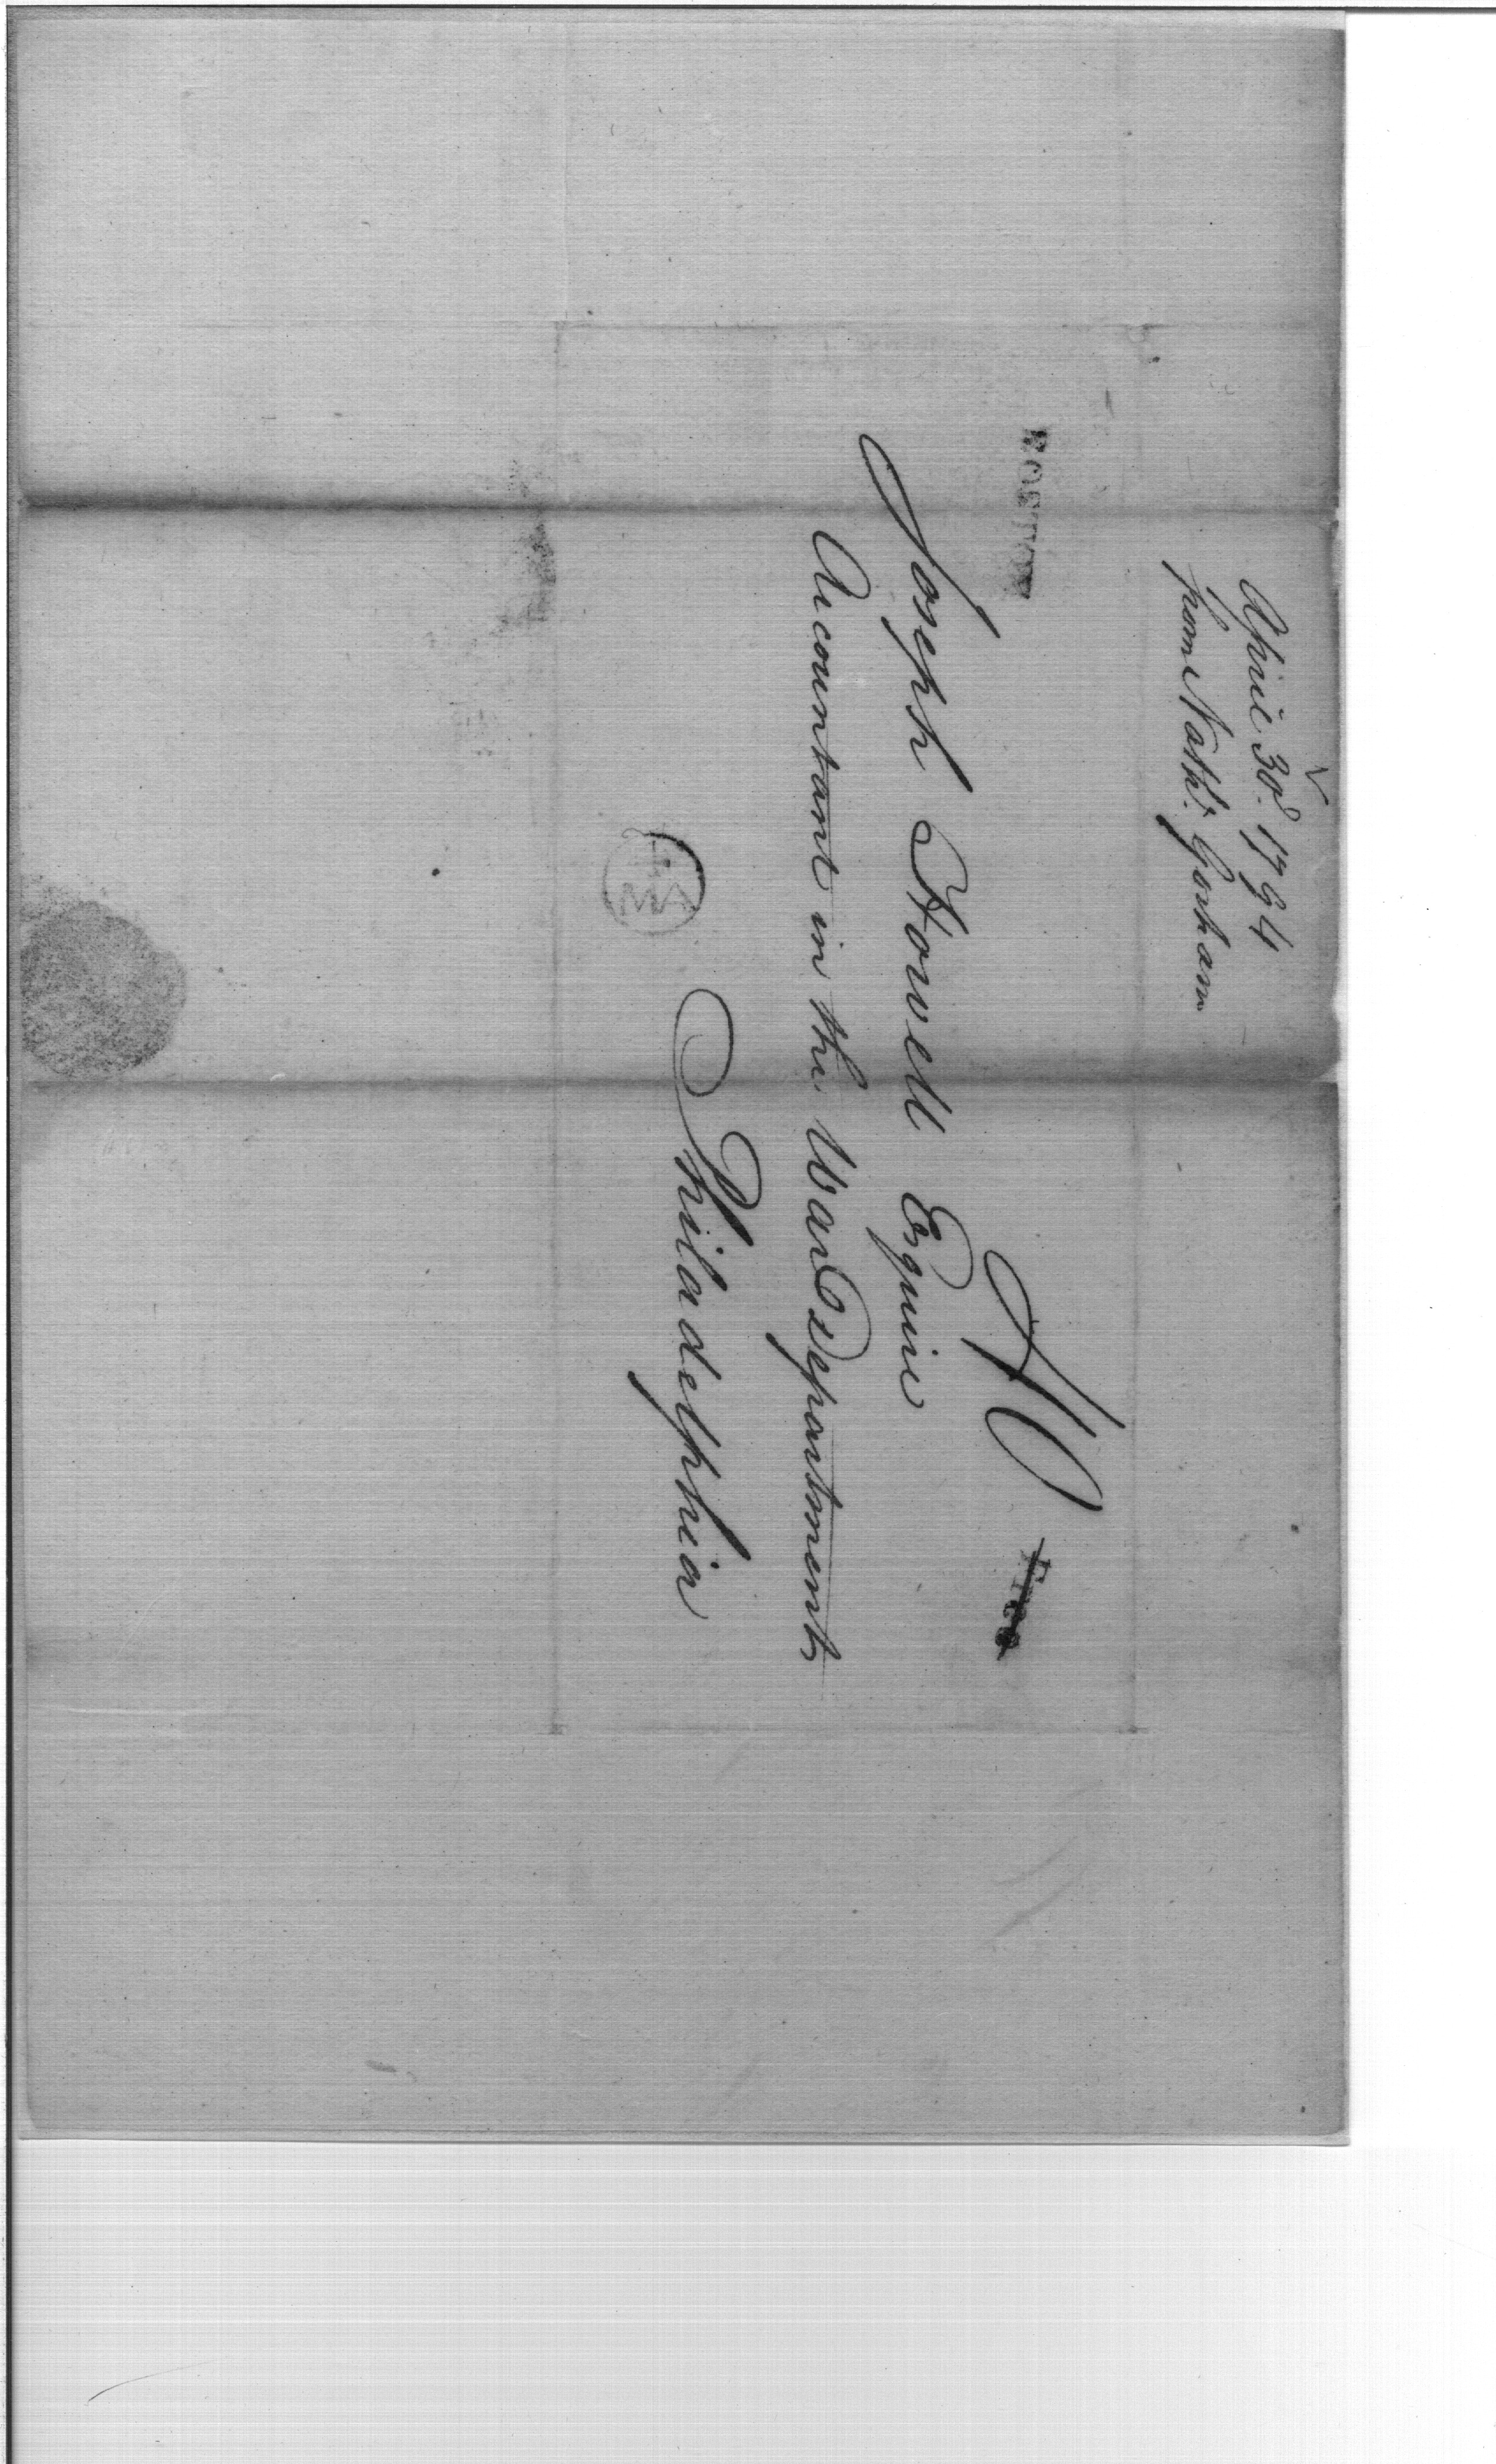 April 30th. 1794
from Nathl. Gorham
BOSTON
40
Free
Joseph Howell Esquire
Accountant in the War Department
Philadelphia